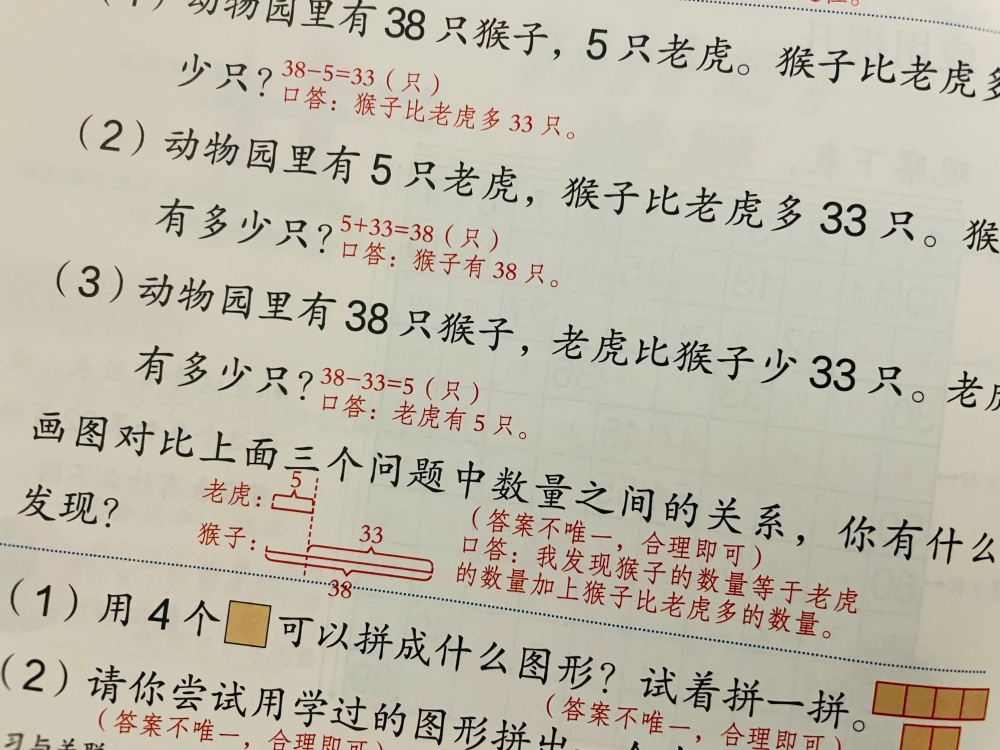 动物园里有38只猴子，5只老虎。猴子比老虎多
少只？38-5=33（只）
口答：猴子比老虎多33只。
（2）动物园里有5只老虎，猴子比老虎多33只。猴
有多少只？5+33=38（只）
口答：猴子有38只。
（3）动物园里有38只猴子，老虎比猴子少33只。老虎
有多少只？38-33=5（只）
口答：老虎有5只。
画图对比上面三个问题中数量之间的关系，你有什么
发现？
老虎：5
猴子：33
38
（答案不唯一，合理即可）
口答：我发现猴子的数量等于老虎
的数量加上猴子比老虎多的数量。
（1）用4个可以拼成什么图形？试着拼一拼。
（答案不唯一，合理即可）
（2）请你尝试用学过的图形拼出一个
（答案不唯一，合理即可）
习与关联